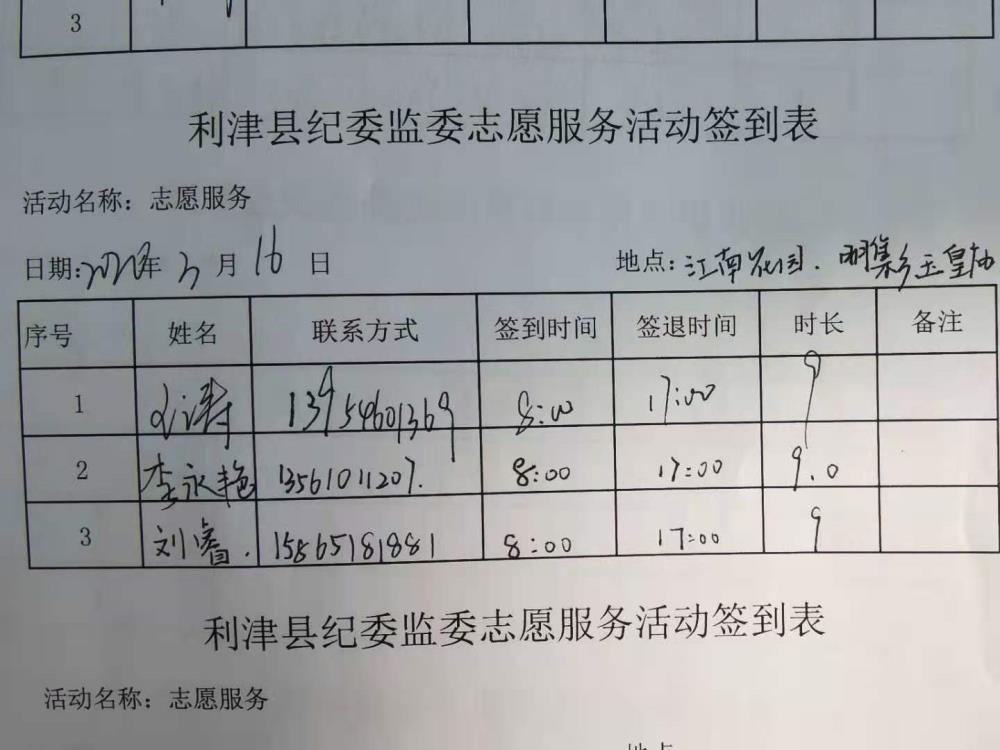 3
利津县纪委监委志愿服务活动签到表
活动名称：志愿服务
日期:2020年 3 月 16 日 地点: 江南花园. 明集乡玉皇庙
序号 姓名 联系方式 签到时间 签退时间 时长 备注
1 13954601369 8:00 17:00 9
2 李永艳 13561011207. 8:00 17:00 9.0
3 刘睿. 15865181881 8:00 17:00 9
利津县纪委监委志愿服务活动签到表
活动名称：志愿服务